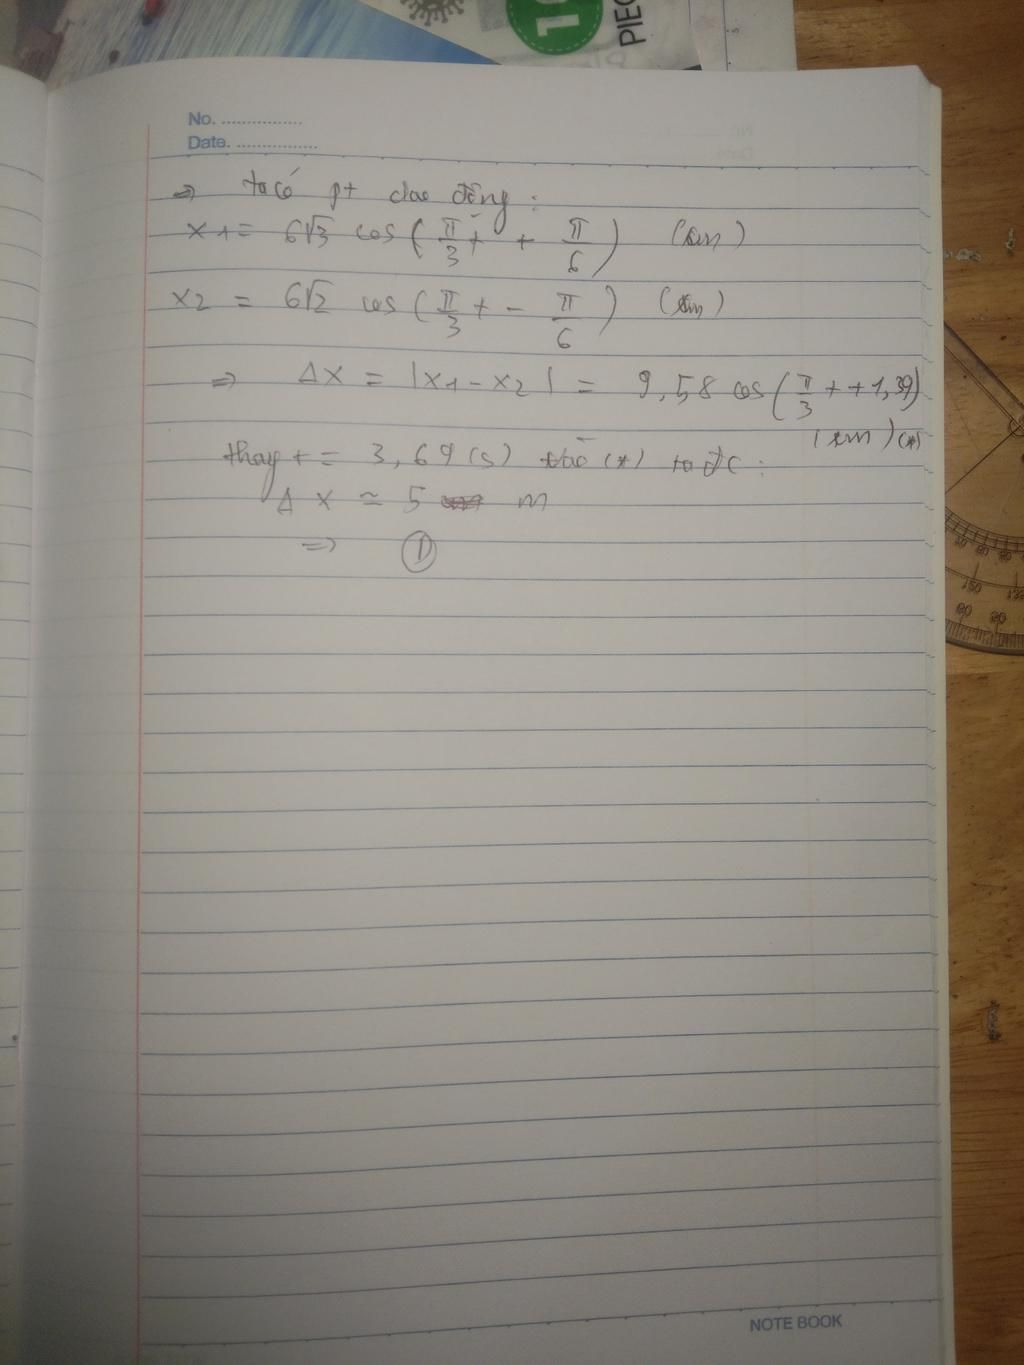 PIEC
No. ................
Date. ................
=> ta có pt dao động :
x1 = 6√3 cos ( π/3 t + π/6 )
x2 = 6√2 cos ( π/3 t - π/6 )
=> Δx = |x1 - x2| = 9,58 cos ( π/3 t + 1,39)
(*)
thay t = 3,69 (s) vào (*) ta đc :
Δx ≃ 5 m
=> ①
NOTE BOOK